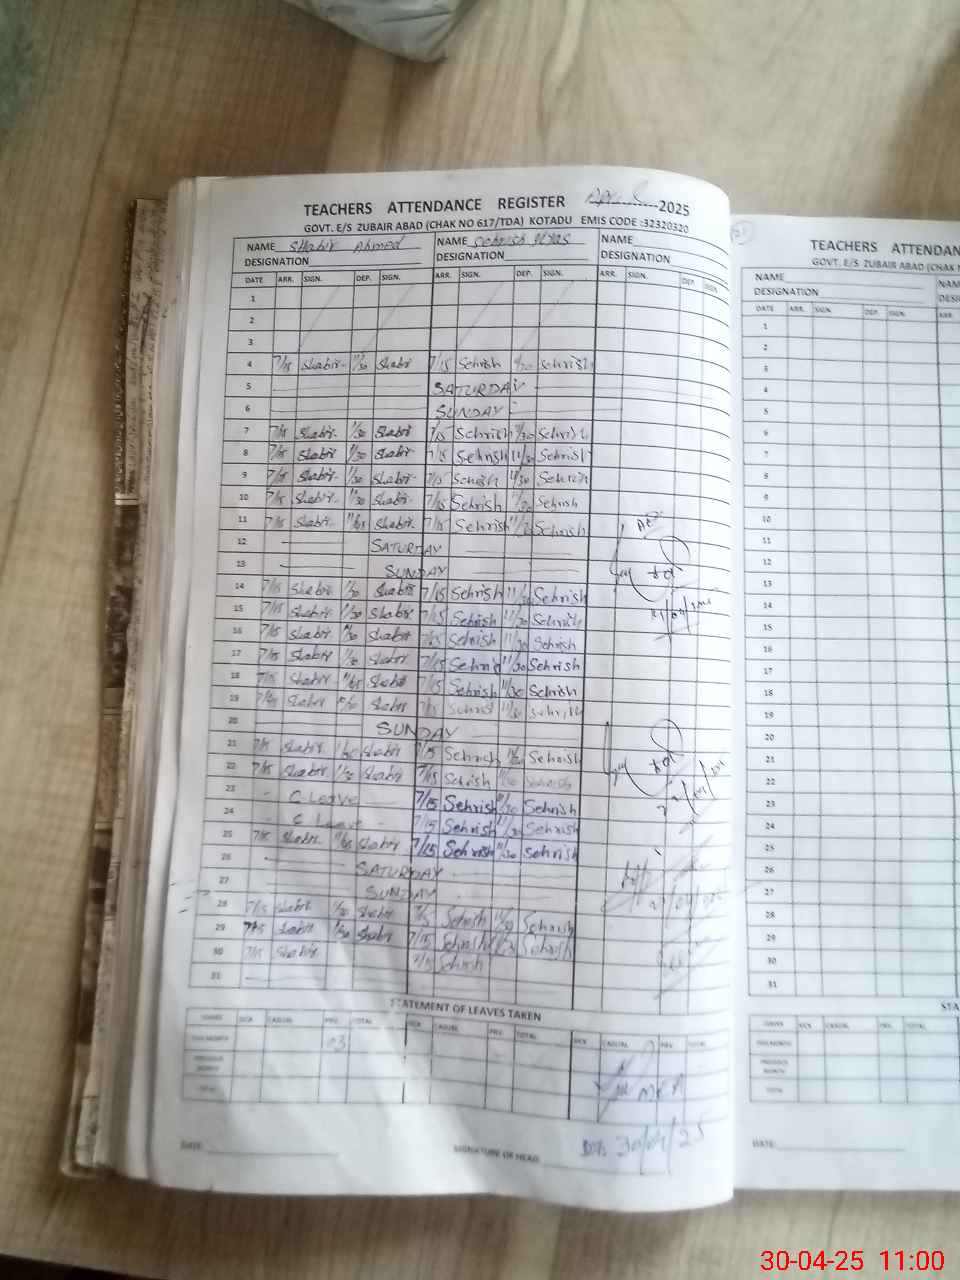 TEACHERS ATTENDANCE REGISTER 2025
GOVT. E/S ZUBAIR ABAD (CHAK NO 617/TDA) KOTADU EMIS CODE :32320320
NAME Shabir Ahmed NAME Sehrish Ilyas NAME
DESIGNATION DESIGNATION DESIGNATION
DATE ARR. SIGN. DEP. SIGN. ARR. SIGN. DEP. SIGN. ARR. SIGN. DEP. SIGN.
1
2
3
4 7/15 Shabir 11/30 Shabir 7/15 Sehrish 11/30 Sehrish
5 SATURDAY
6 SUNDAY
7 7/15 Shabir 11/30 Shabir 7/15 Sehrish 11/30 Sehrish
8 7/15 Shabir 11/30 Shabir 7/15 Sehrish 11/30 Sehrish
9 7/15 Shabir 11/30 Shabir 7/15 Sehrish 11/30 Sehrish
10 7/15 Shabir 11/30 Shabir 7/15 Sehrish 11/30 Sehrish
11 7/15 Shabir Shabir 7/15 Sehrish Sehrish
12 SATURDAY
13 SUNDAY
14 7/15 Shabir 11/30 Shabir 7/15 Sehrish 11/30 Sehrish
15 7/15 Shabir 11/30 Shabir 7/15 Sehrish 11/30 Sehrish
16 7/15 Shabir 11/30 Shabir 7/15 Sehrish 11/30 Sehrish
17 7/15 Shabir 11/30 Shabir 7/15 Sehrish 11/30 Sehrish
18 7/15 Shabir Shabir 7/15 Sehrish 11/30 Sehrish
19 7/15 Shabir Shabir 7/15 Sehrish 11/30 Sehrish
20 SUNDAY
21 7/15 Shabir Shabir 7/15 Sehrish Sehrish
22 7/15 Shabir 11/30 Shabir 7/15 Sehrish Sehrish
23 C-Leave 7/15 Sehrish 11/30 Sehrish
24 C Leave 7/15 Sehrish 11/30 Sehrish
25 7/15 Shabir Shabir 7/15 Sehrish 11/30 Sehrish
26 SATURDAY
27 SUNDAY
28 7/15 Shabir 11/30 Shabir 7/15 Sehrish Sehrish
29 7/15 Shabir 11/30 Shabir 7/15 Sehrish Sehrish
30 7/15 Shabir 7/15 Sehrish
31
STATEMENT OF LEAVES TAKEN
LEAVES SICK CASUAL PRV. TOTAL SICK CASUAL PRV. TOTAL SICK CASUAL PRV. TOTAL
THIS MONTH 03
PREVIOUS MONTH
TOTAL
MEA
30/04/25
DATE SIGNATURE OF HEAD
TEACHERS ATTENDAN
GOVT. E/S ZUBAIR ABAD (CHAK N
NAME NAM
DESIGNATION DESI
DATE ARR. SIGN. DEP. SIGN. ARR.
1
2
3
4
5
6
7
8
9
10
11
12
13
14
15
16
17
18
19
20
21
22
23
24
25
26
27
28
29
30
31
STA
LEAVES SICK CASUAL PRV. TOTAL
THIS MONTH
PREVIOUS MONTH
TOTAL
DATE
30-04-25 11:00